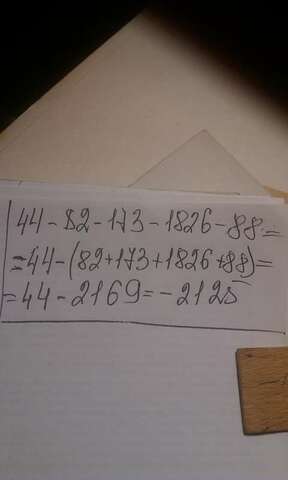 44-82-173-1826-88=
=44-(82+173+1826+88)=
=44-2169=-2125